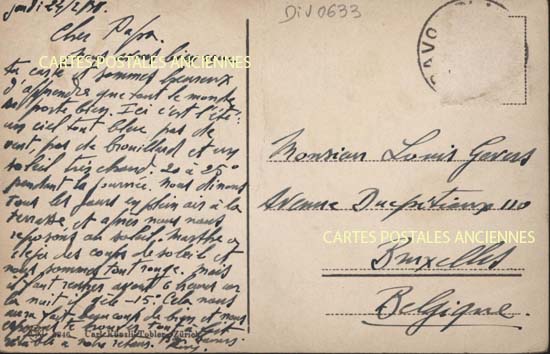 Jeudi 24/2/38.
DIV0633
Cher Papa.
Nous avons bien reçu
ta carte et sommes heureux
d'apprendre que tout le monde
se porte bien. Ici c'est l'été:
un ciel tout bleu, pas de
vent, pas de brouillard et un
soleil très chaud. 20 à 25°
pendant la journée. Nous dînons
tous les jours en plein air à la
terrasse, et après nous nous
reposons au soleil. Marthe a
déjà des coups de soleil et
nous sommes tout rouge. Mais
il faut rentrer avant 6 heures car
la nuit il gèle -15°. Cela nous
aura fait beaucoup de bien et nous
à notre retour.
DAVO
CARTES POSTALES ANCIENNES
Monsieur Louis Gevers
Avenue Ducpétiaux 110
CARTES POSTALES ANCIENNES
Bruxelles
Belgique.
Carl Künzli-Tobler, Zürich